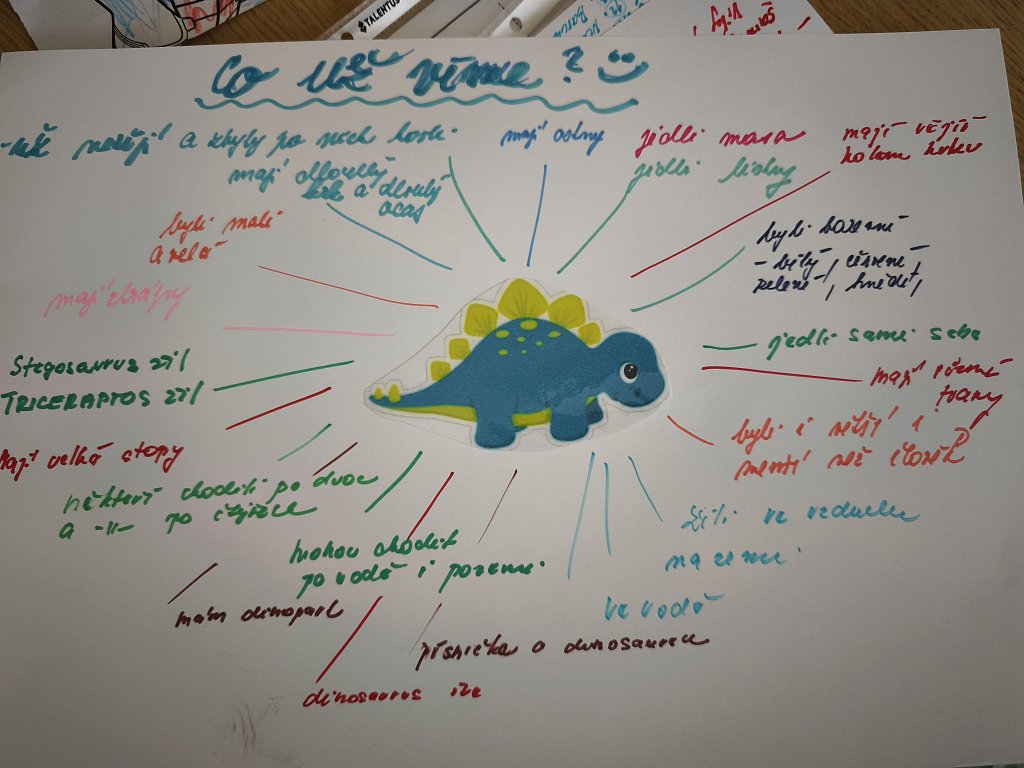 TALENTOS
Co už víme?
- už nežijí a zbyly po nich kosti
mají ostny
jedli maso
jedli listy
mají
kolem krku
mají dlouhý
krk a dlouhý
ocas
byli malí
a velcí
byli barevní
- bílý, červení,
zelení, hnědí,
mají drápy
jedli sami sebe
Stegosaurus žil
TRICERAPTOS žil
mají různé
tvary
mají velké stopy
byli i větší i
menší než člověk
někteří chodili po dvou
a -||- po čtyřech
žili ve vzduchu
na zemi
ve vodě
mohou chodit
po vodě i po zemi
mám dinopark
písnička o dinosaurech
dinosaurus